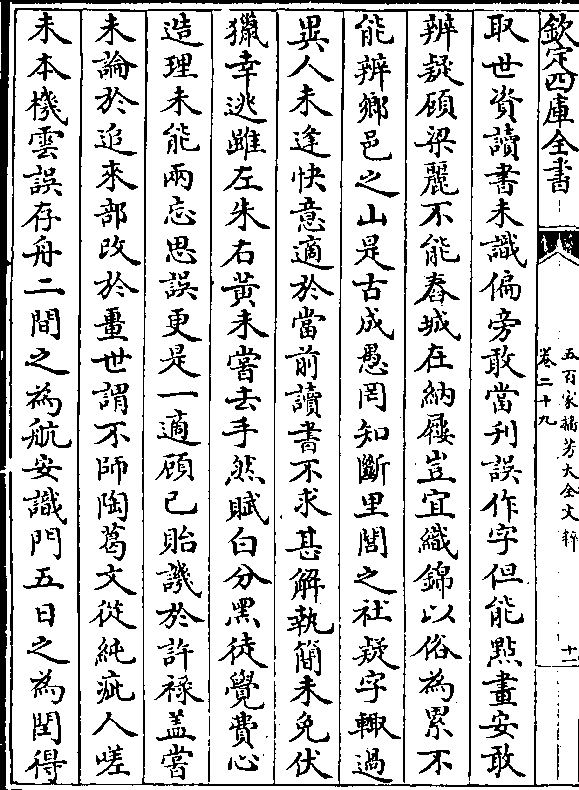 欽定四庫全書
五百家播芳大全文粹
卷二十九
十二
取世資讀書未識偏旁敢當刋誤作字但能㸃畫安敢
辨疑顧梁麗不能舂城在納屨豈宜織錦以俗為累不
能辨鄉邑之山是古成愚罔知斷里閭之社疑字輙過
異人未逢快意適於當前讀書不求甚解執簡未免伏
獵幸逃雖左朱右黄未嘗去手然賦白分黒徒覺費心
造理未能兩忘思誤更是一適顧已貽譏於許祿盖嘗
未論於追來部改於畺世謂不師陶葛文從純疵人嗟
未本機雲誤存舟二間之為航安識門五日之為閏得